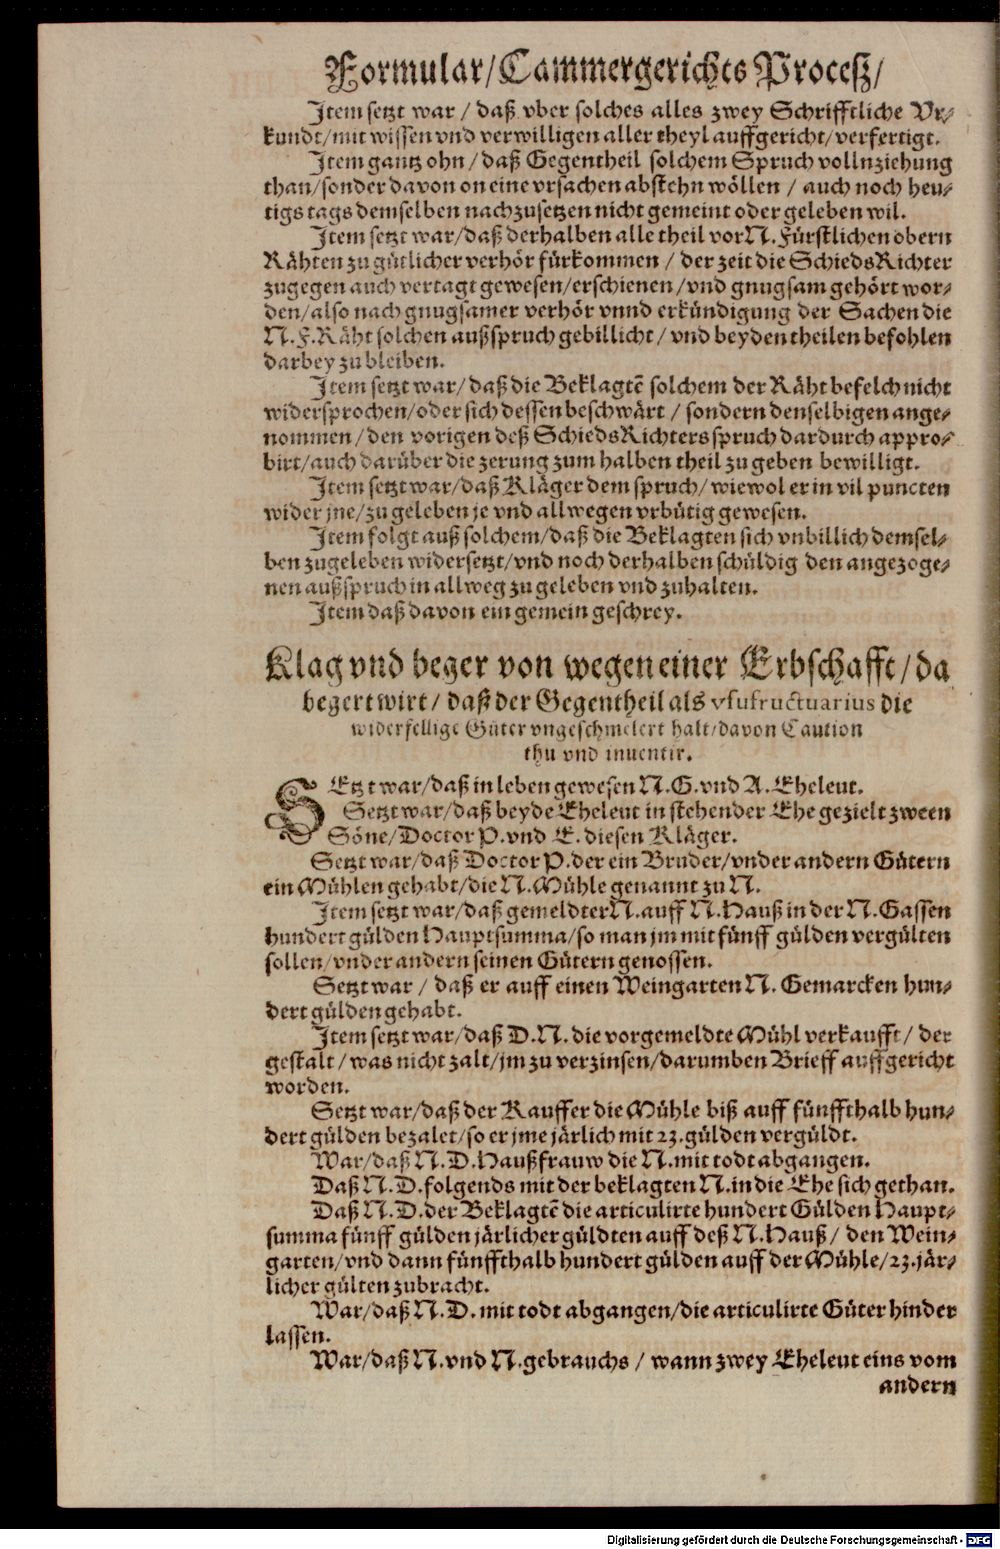 Formular/Cammergerichts Proceß/
Item setzt war / daß vber solches alles zwey Schrifftliche Vr-
kundt/mit wissen vnd verwilligen aller theyl auffgericht/verfertigt.
Item gantz ohn / daß Gegentheil solchem Spruch vollnziehung
than/sonder davon on eine vrsachen abstehn wöllen / auch noch heu-
tigs tags demselben nachzusetzen nicht gemeint oder geleben wil.
Item setzt war/daß derhalben alle theil vor N. Fürstlichen obern
Rähten zu gütlicher verhör fürkommen / der zeit die SchiedsRichter
zugegen auch vertagt gewesen/erschienen/vnd gnugsam gehört wor-
den/also nach gnugsamer verhör vnnd erkündigung der Sachen die
N. F. Räht solchen außspruch gebillicht/ vnd beyden theilen befohlen
darbey zu bleiben.
Item setzt war/ daß die Beklagtē solchem der Räht befelch nicht
widersprochen/oder sich dessen beschwärt / sondern denselbigen ange-
nommen/den vorigen deß SchiedsRichters spruch dardurch appro-
birt/auch darüber die zerung zum halben theil zu geben bewilligt.
Item setzt war/daß Kläger dem spruch/wiewol er in vil puncten
wider jne/zu geleben je vnd allwegen vrbütig gewesen.
Item folgt auß solchem/daß die Beklagten sich vnbillich demsel-
ben zugeleben widersetzt/vnd noch derhalben schüldig den angezoge-
nen außspruch in allweg zu geleben vnd zuhalten.
Item daß davon ein gemein geschrey.
Klag vnd beger von wegen einer Erbschafft/da
begert wirt/ daß der Gegentheil als vsufructuarius die
widerfellige Güter vngeschmelert halt/davon Caution
thu vnd inuentir.
SEtzt war/daß in leben gewesen N. G. vnd A. Eheleut.
Setzt war/daß beyde Eheleut in stehender Ehe gezielt zween
Söne/Doctor P. vnd E. diesen Kläger.
Setzt war/daß Doctor P. der ein Bruder/vnder andern Gütern
ein Mühlen gehabt/die N. Mühle genannt zu N.
Item setzt war/daß gemeldter N. auff N. Hauß in der N. Gassen
hundert gülden Hauptsumma/so man jm mit fünff gülden vergülten
sollen/vnder andern seinen Gütern genossen.
Setzt war / daß er auff einen Weingarten N. Gemarcken hun-
dert gülden gehabt.
Item setzt war/daß D. N. die vorgemeldte Mühl verkaufft/ der
gestalt/was nicht zalt/jm zu verzinsen/darumben Brieff auffgericht
worden.
Setzt war/daß der Kauffer die Mühle biß auff fünffthalb hun-
dert gülden bezalet/so er jme järlich mit 23. gülden vergüldt.
War/daß N. D. Haußfrauw die N. mit todt abgangen.
Daß N. D. folgends mit der beklagten N. in die Ehe sich gethan.
Daß N. D. der Beklagtē die articulirte hundert Gülden Haupt-
summa fünff gülden järlicher güldten auff deß N. Hauß/ den Wein-
garten/vnd dann fünffthalb hundert gülden auff der Mühle/23. jär-
licher gülten zubracht.
War/daß N. D. mit todt abgangen/die articulirte Güter hinder
lassen.
War/daß N. vnd N. gebrauchs / wann zwey Eheleut eins vom
andern
Digitalisierung gefördert durch die Deutsche Forschungsgemeinschaft - DFG